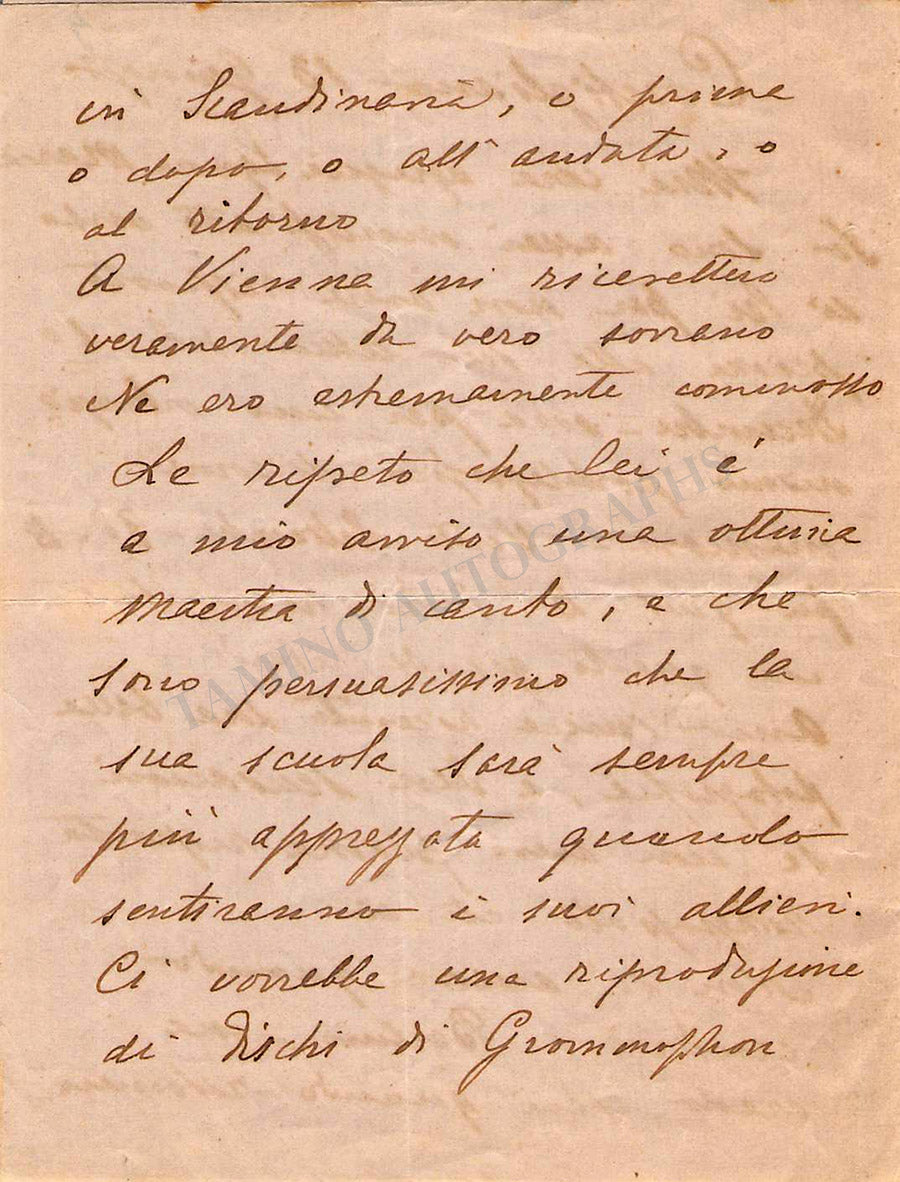 in Scandinavia, o prima
o dopo, o all' andata, o
al ritorno
A Vienna mi ricevettero
veramente da vero sovrano
Ne ero estremamente commosso
Le ripeto che lei é
a mio avviso una ottima
Maestra di canto, e che
sono persuasissimo che la
sua scuola sarà sempre
più apprezzata quando
sentiranno i suoi allievi.
Ci vorrebbe una riproduzione
di dischi di Grommophon
TAMINO AUTOGRAPHS